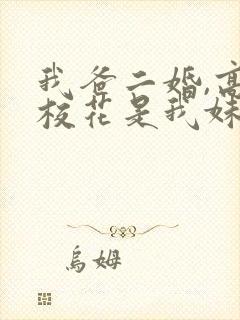 我爸二婚,高
校花是我妹
乌姆